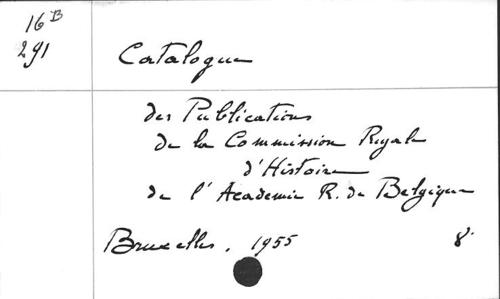 16 B
291
Catalogue
des Publications
de la Commission Royale
d'Histoire
de l'Academie R. de Belgique
Bruxelles, 1955 8°